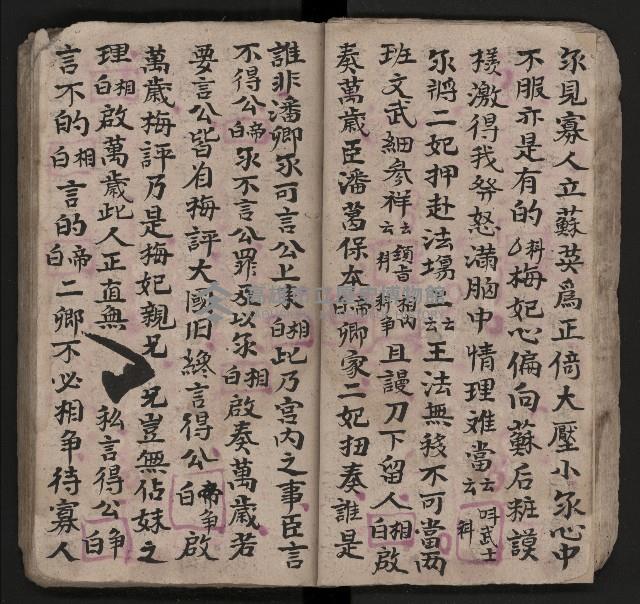 尔見寡人立蘇英為正倚大壓小尔心中
不服亦是有的料梅妃心偏向蘇后粧謨
様激得我发怒满脑中情理难當云叫武士科
尔將二妃押赴法場云云王法無践不可當两
班文武細参祥云科且謾刀下留人相白啟
奏萬歲臣潘葛保本帝白卿家二妃扭奏誰是
誰非潘卿尔可言公上来相白此乃宮内之事臣言
不得公帝白尔不言公罪及以尔相白啟奏萬歲若
要言公皆有梅評大國旧終言得公帝争白啟
萬歲梅評乃是梅妃親兄兄豈無佔妹之
理相白啟萬歲此人正直無私言得公争白
言不的相白言的帝白二卿不必相争待寡人
高雄市立歷史博物館